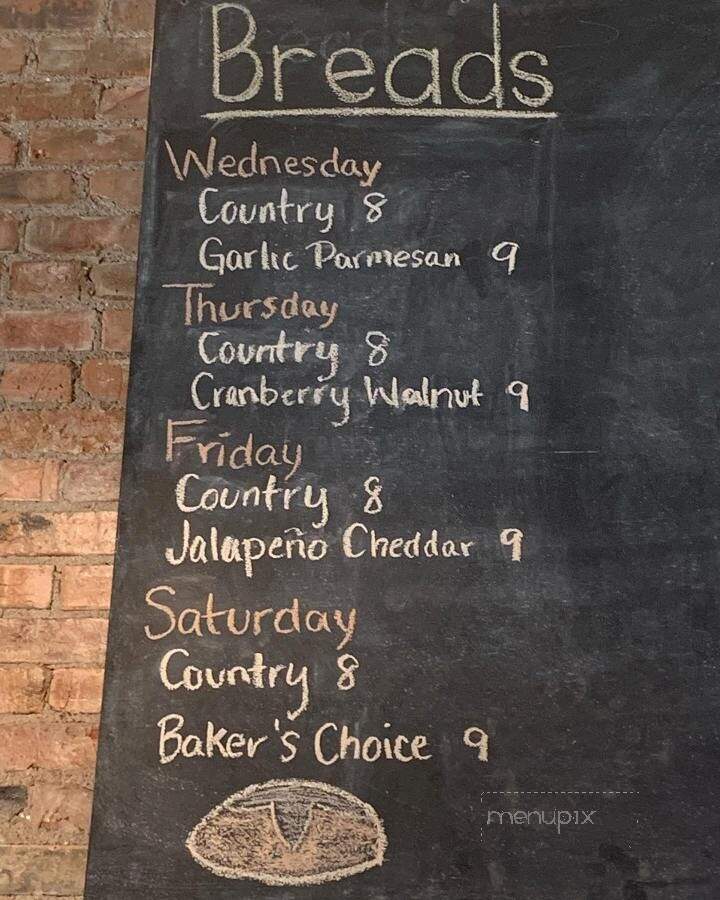 Breads
Wednesday
Country 8
Garlic Parmesan 9
Thursday
Country 8
Cranberry Walnut 9
Friday
Country 8
Jalapeño Cheddar 9
Saturday
Country 8
Baker's Choice 9
menupix